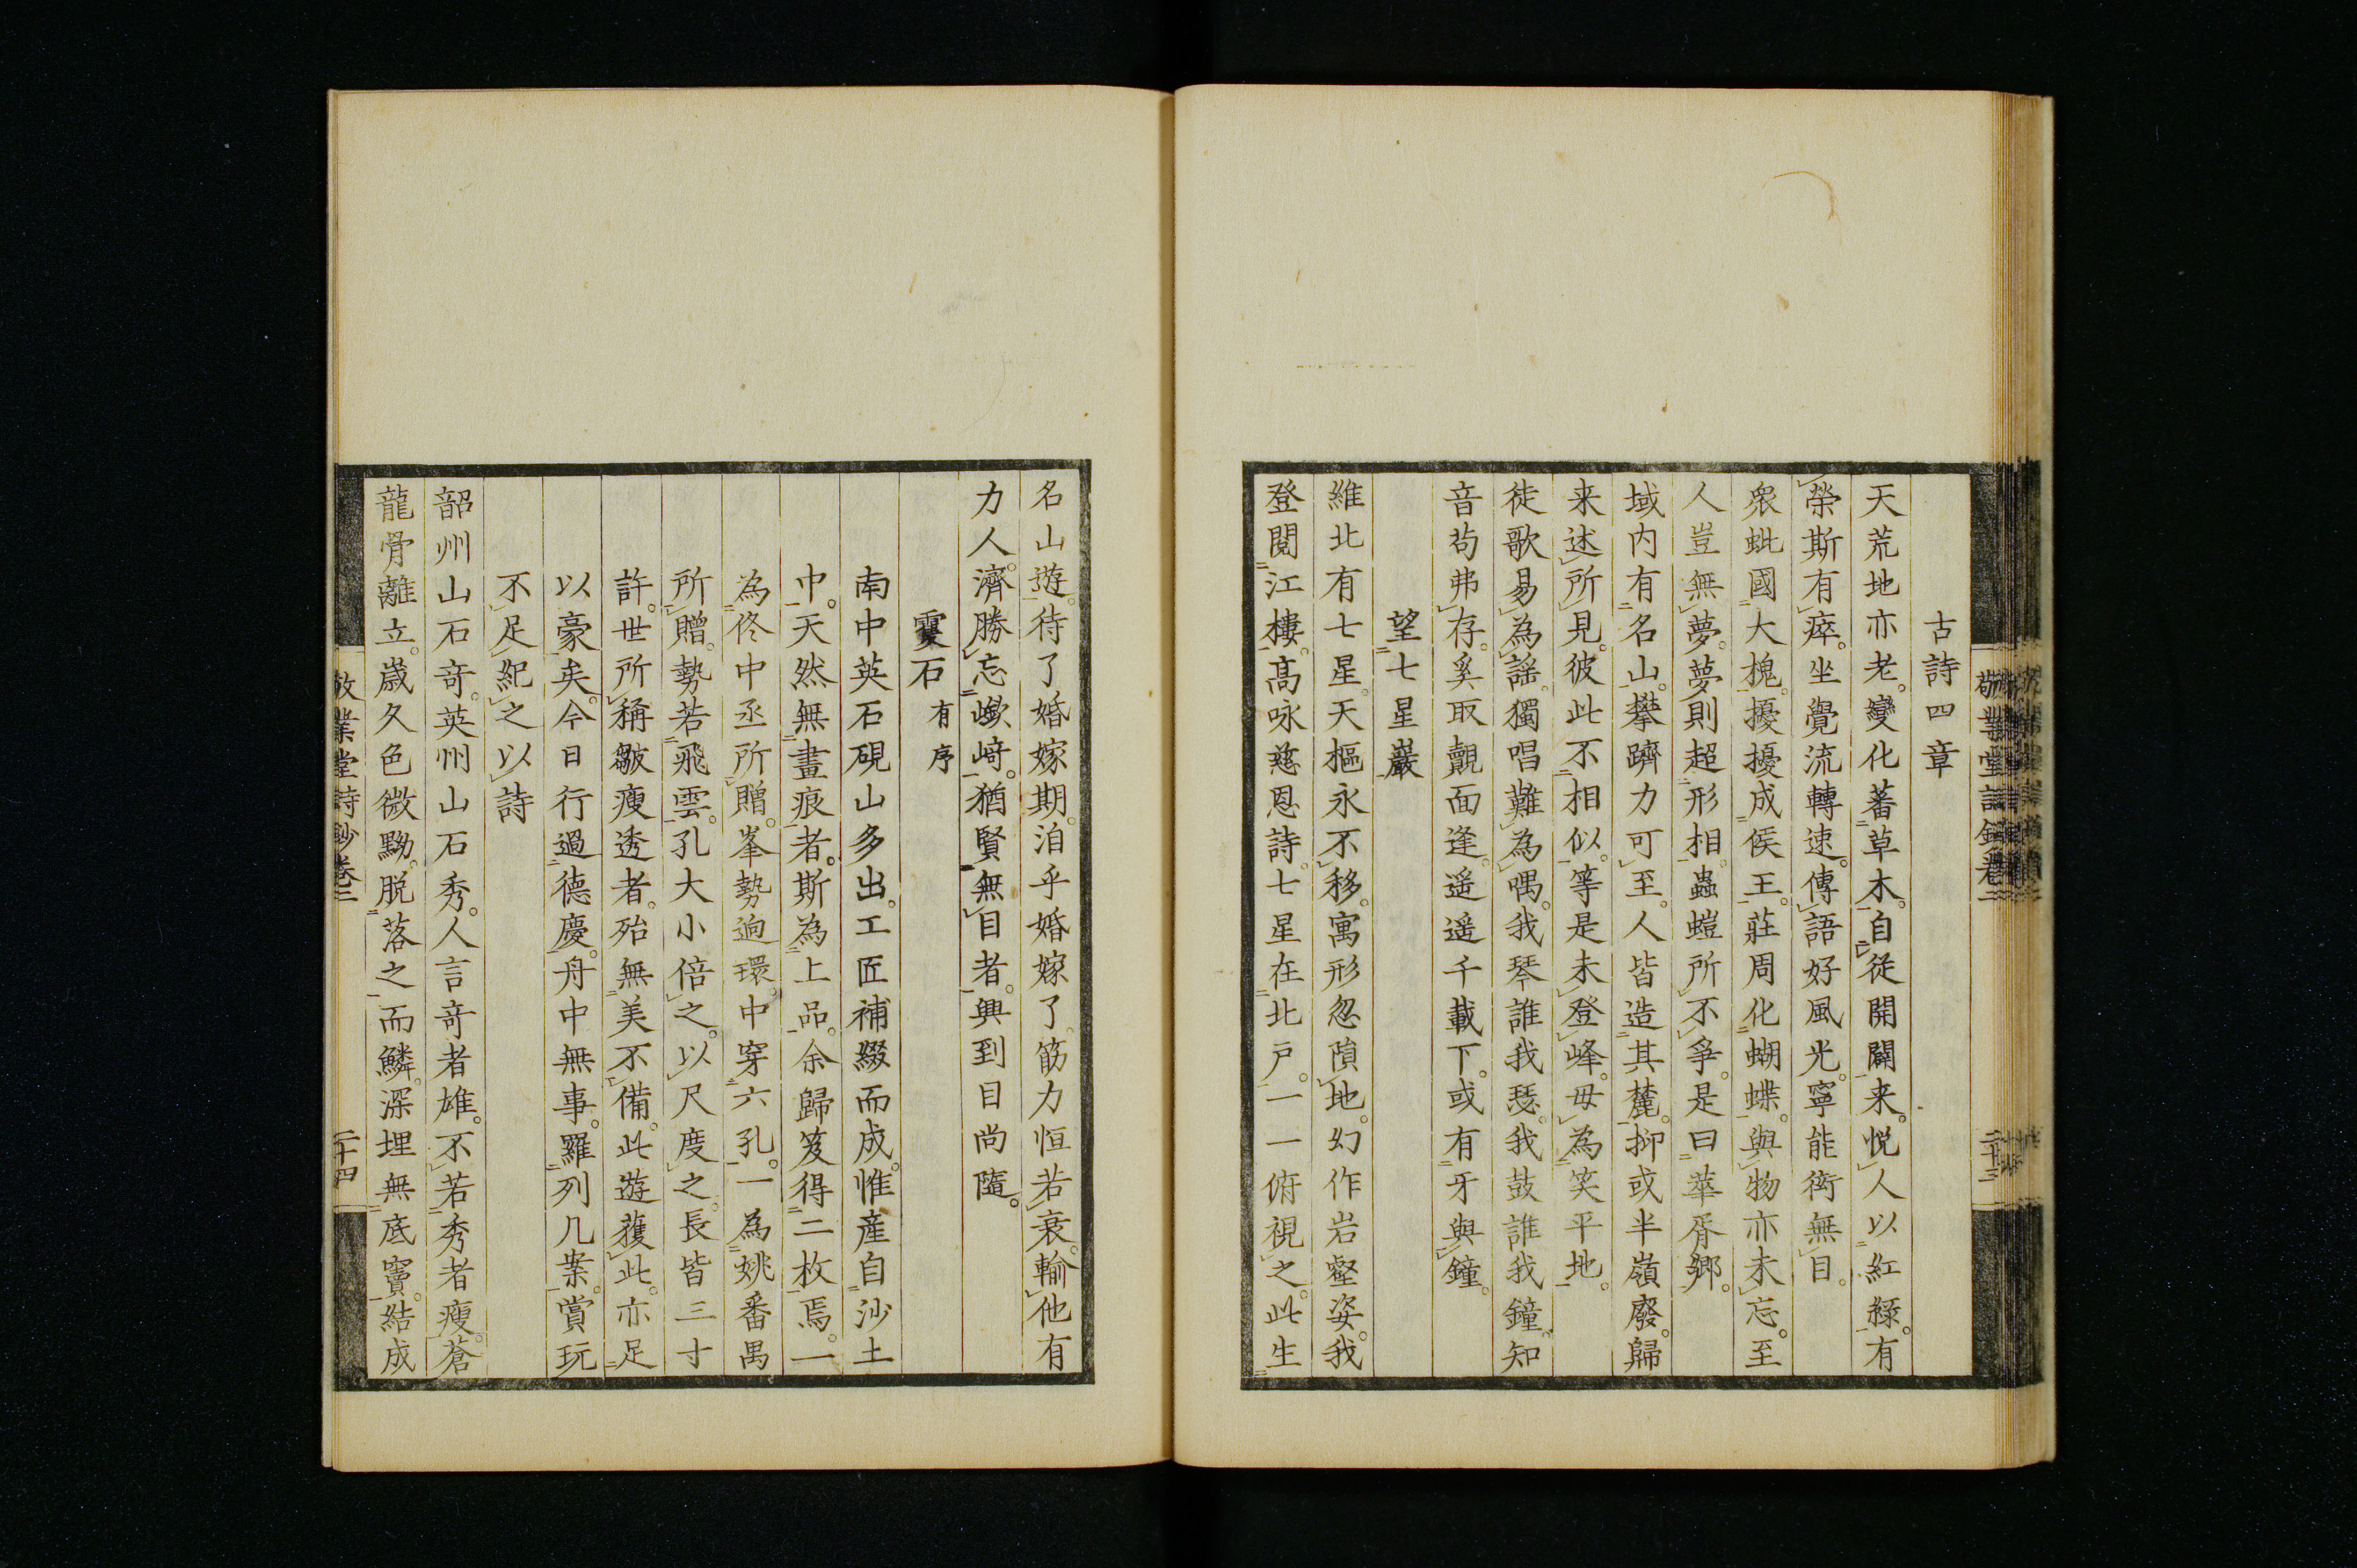 古詩四章
天荒地亦老。變化蕃草木。自從開闢来。悅人以紅綠。有
榮斯有瘁。坐覺流轉速。傳語好風光。寧能衒無目。
衆蚍國大槐。擾擾成侯王。莊周化蝴蝶。與物亦未忘。至
人豈無夢。夢則超形相。蟲螘所不爭。是曰華胥鄉。
域内有名山。攀躋力可至。人皆造其麓。抑或半嶺廢。歸
来述所見。彼此不相似。等是未登峰。毋為笑平地。
徒歌易為謡。獨唱難為喁。我琴誰我瑟。我鼓誰我鐘。知
音苟弗存。奚取覿面逢。遥遥千載下。或有牙與鐘。
望七星巖
維北有七星。天樞永不移。寓形忽隕地。幻作岩壑姿。我
登閱江樓。高咏慈恩詩。七星在北戸。一一俯視之。此生
名山遊。待了婚嫁期。洎乎婚嫁了。筋力恒若衰。輸他有
力人。濟勝忘嶔崎。猶賢無目者。興到目尚隨。
霙石 有序
南中英石硯山多出。工匠補綴而成。惟産自沙土
中。天然無畫痕者。斯為上品。余歸笈得二枚焉。一
為佟中丞所贈。峯勢迴環。中穿六孔。一為姚番禺
所贈。勢若飛雲。孔大小倍之。以尺度之。長皆三寸
許。世所稱皺瘦透者。殆無美不備。此遊獲此。亦足
以豪矣。今日行過德慶。舟中無事。羅列几案。賞玩
不足紀之以詩
韶州山石竒。英州山石秀。人言竒者雄。不若秀者瘦。蒼
龍骨離立。歳久色微黝。脱落之而鱗。深埋無底竇。結成
敬業堂詩鈔卷三
二十四